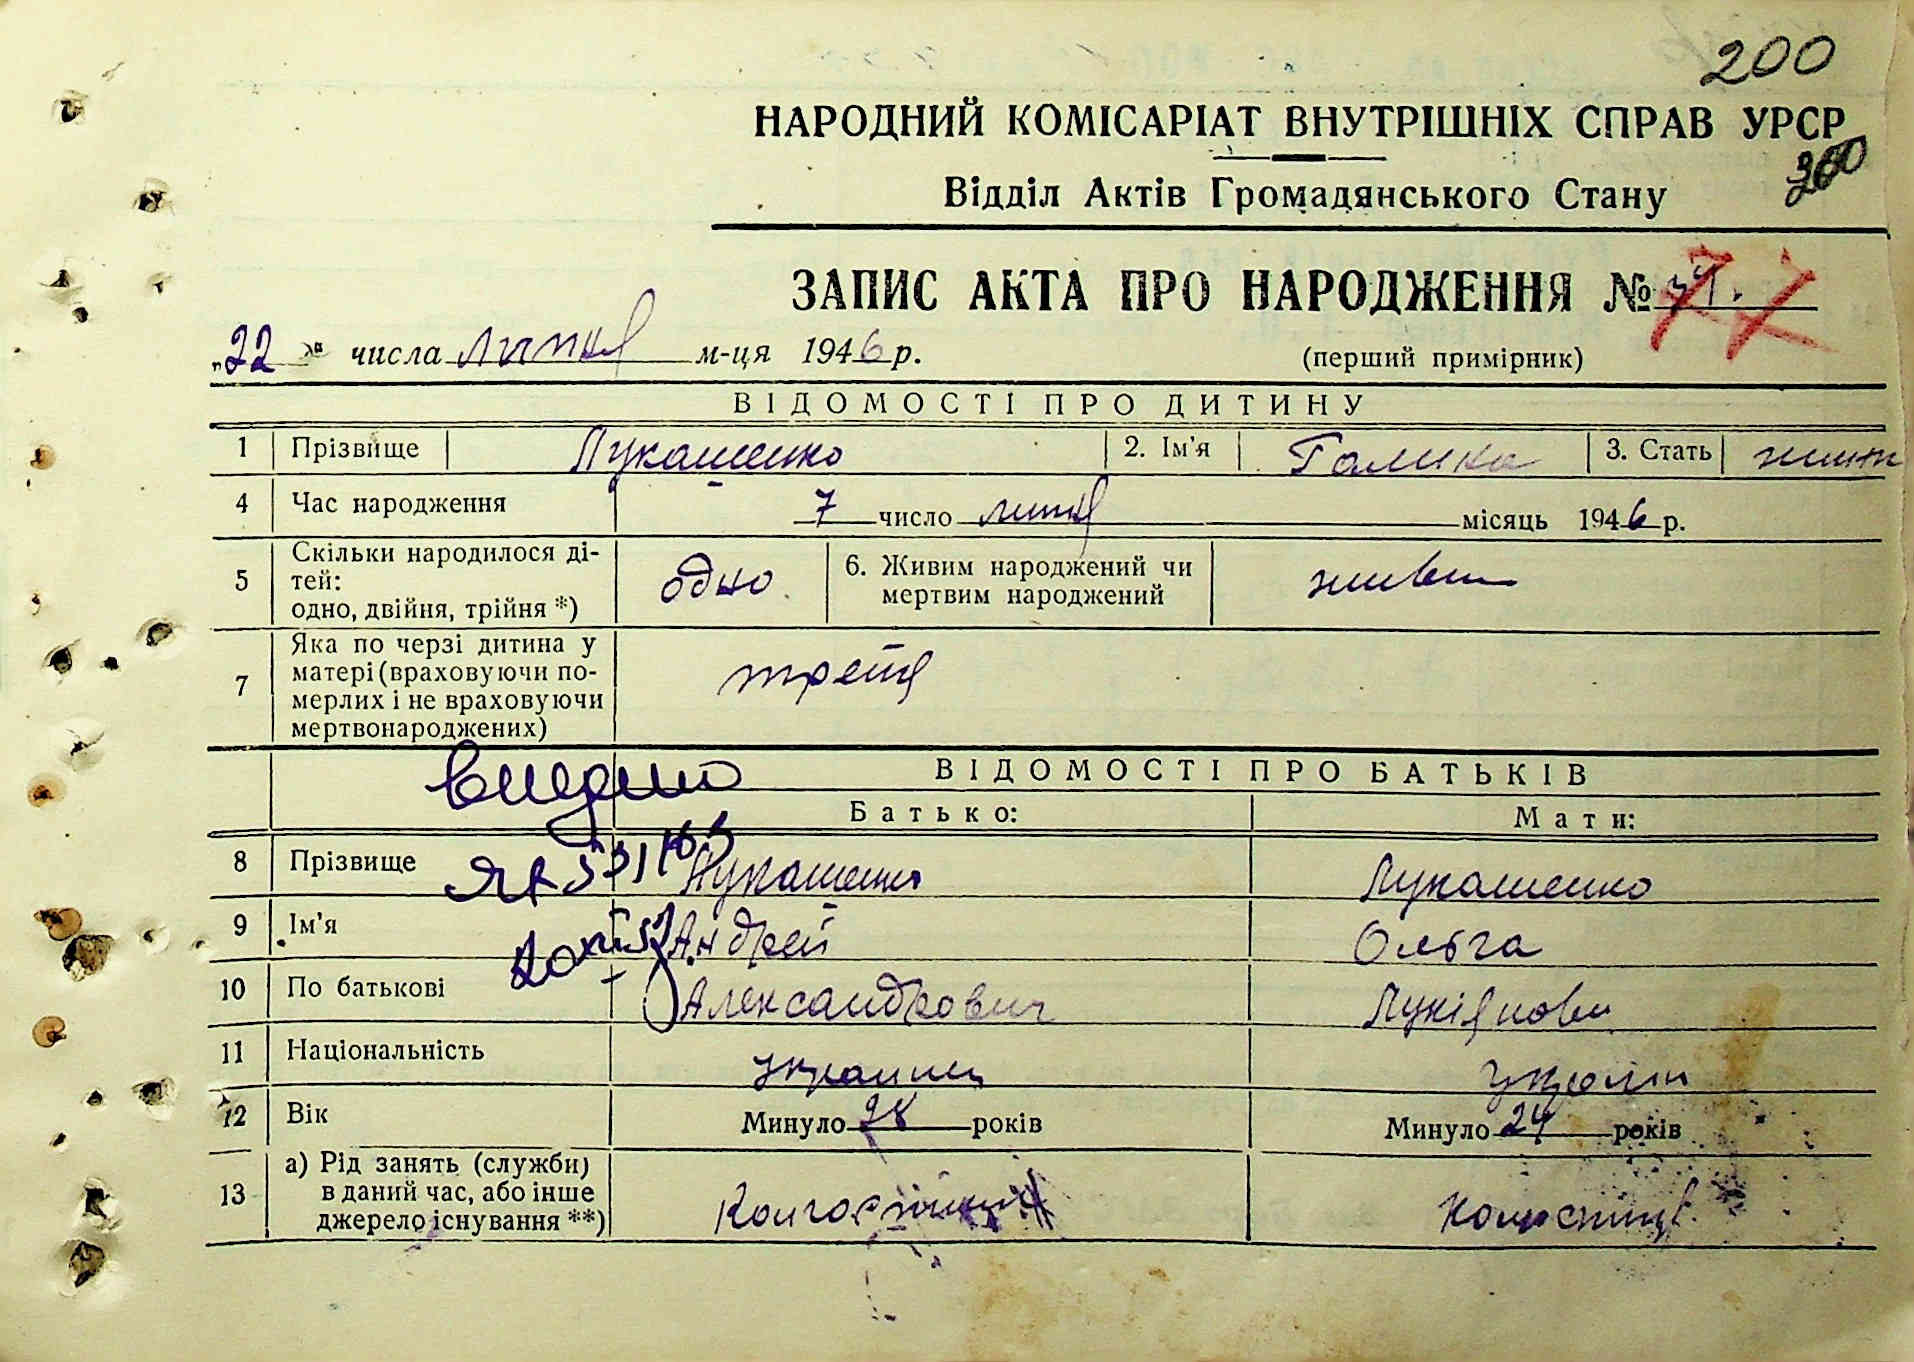 200
НАРОДНИЙ КОМІСАРІАТ ВНУТРІШНІХ СПРАВ УРСР
300
Відділ Актів Громадянського Стану
ЗАПИС АКТА ПРО НАРОДЖЕННЯ № 77
„22“ числа липня м-ця 1946 р. (перший примірник)
ВІДОМОСТІ ПРО ДИТИНУ
1 Прізвище Лукашенко 2. Ім'я Галина 3. Стать жіноч
4 Час народження 7 число липня місяць 1946 р.
5 Скільки народилося ді-
тей:
одно, двійня, трійня *) одно 6. Живим народжений чи
мертвим народжений живим
7 Яка по черзі дитина у
матері (враховуючи по-
мерлих і не враховуючи
мертвонароджених) третя
ВІДОМОСТІ ПРО БАТЬКІВ
Батько: Мати:
8 Прізвище Лукашенко Лукашенко
9 Ім'я Андрей Ольга
10 По батькові Александрович Лукіянови
11 Національність украинец україн
12 Вік Минуло 28 років Минуло 24 років
13 а) Рід занять (служби)
в даний час, або інше
джерело існування **)